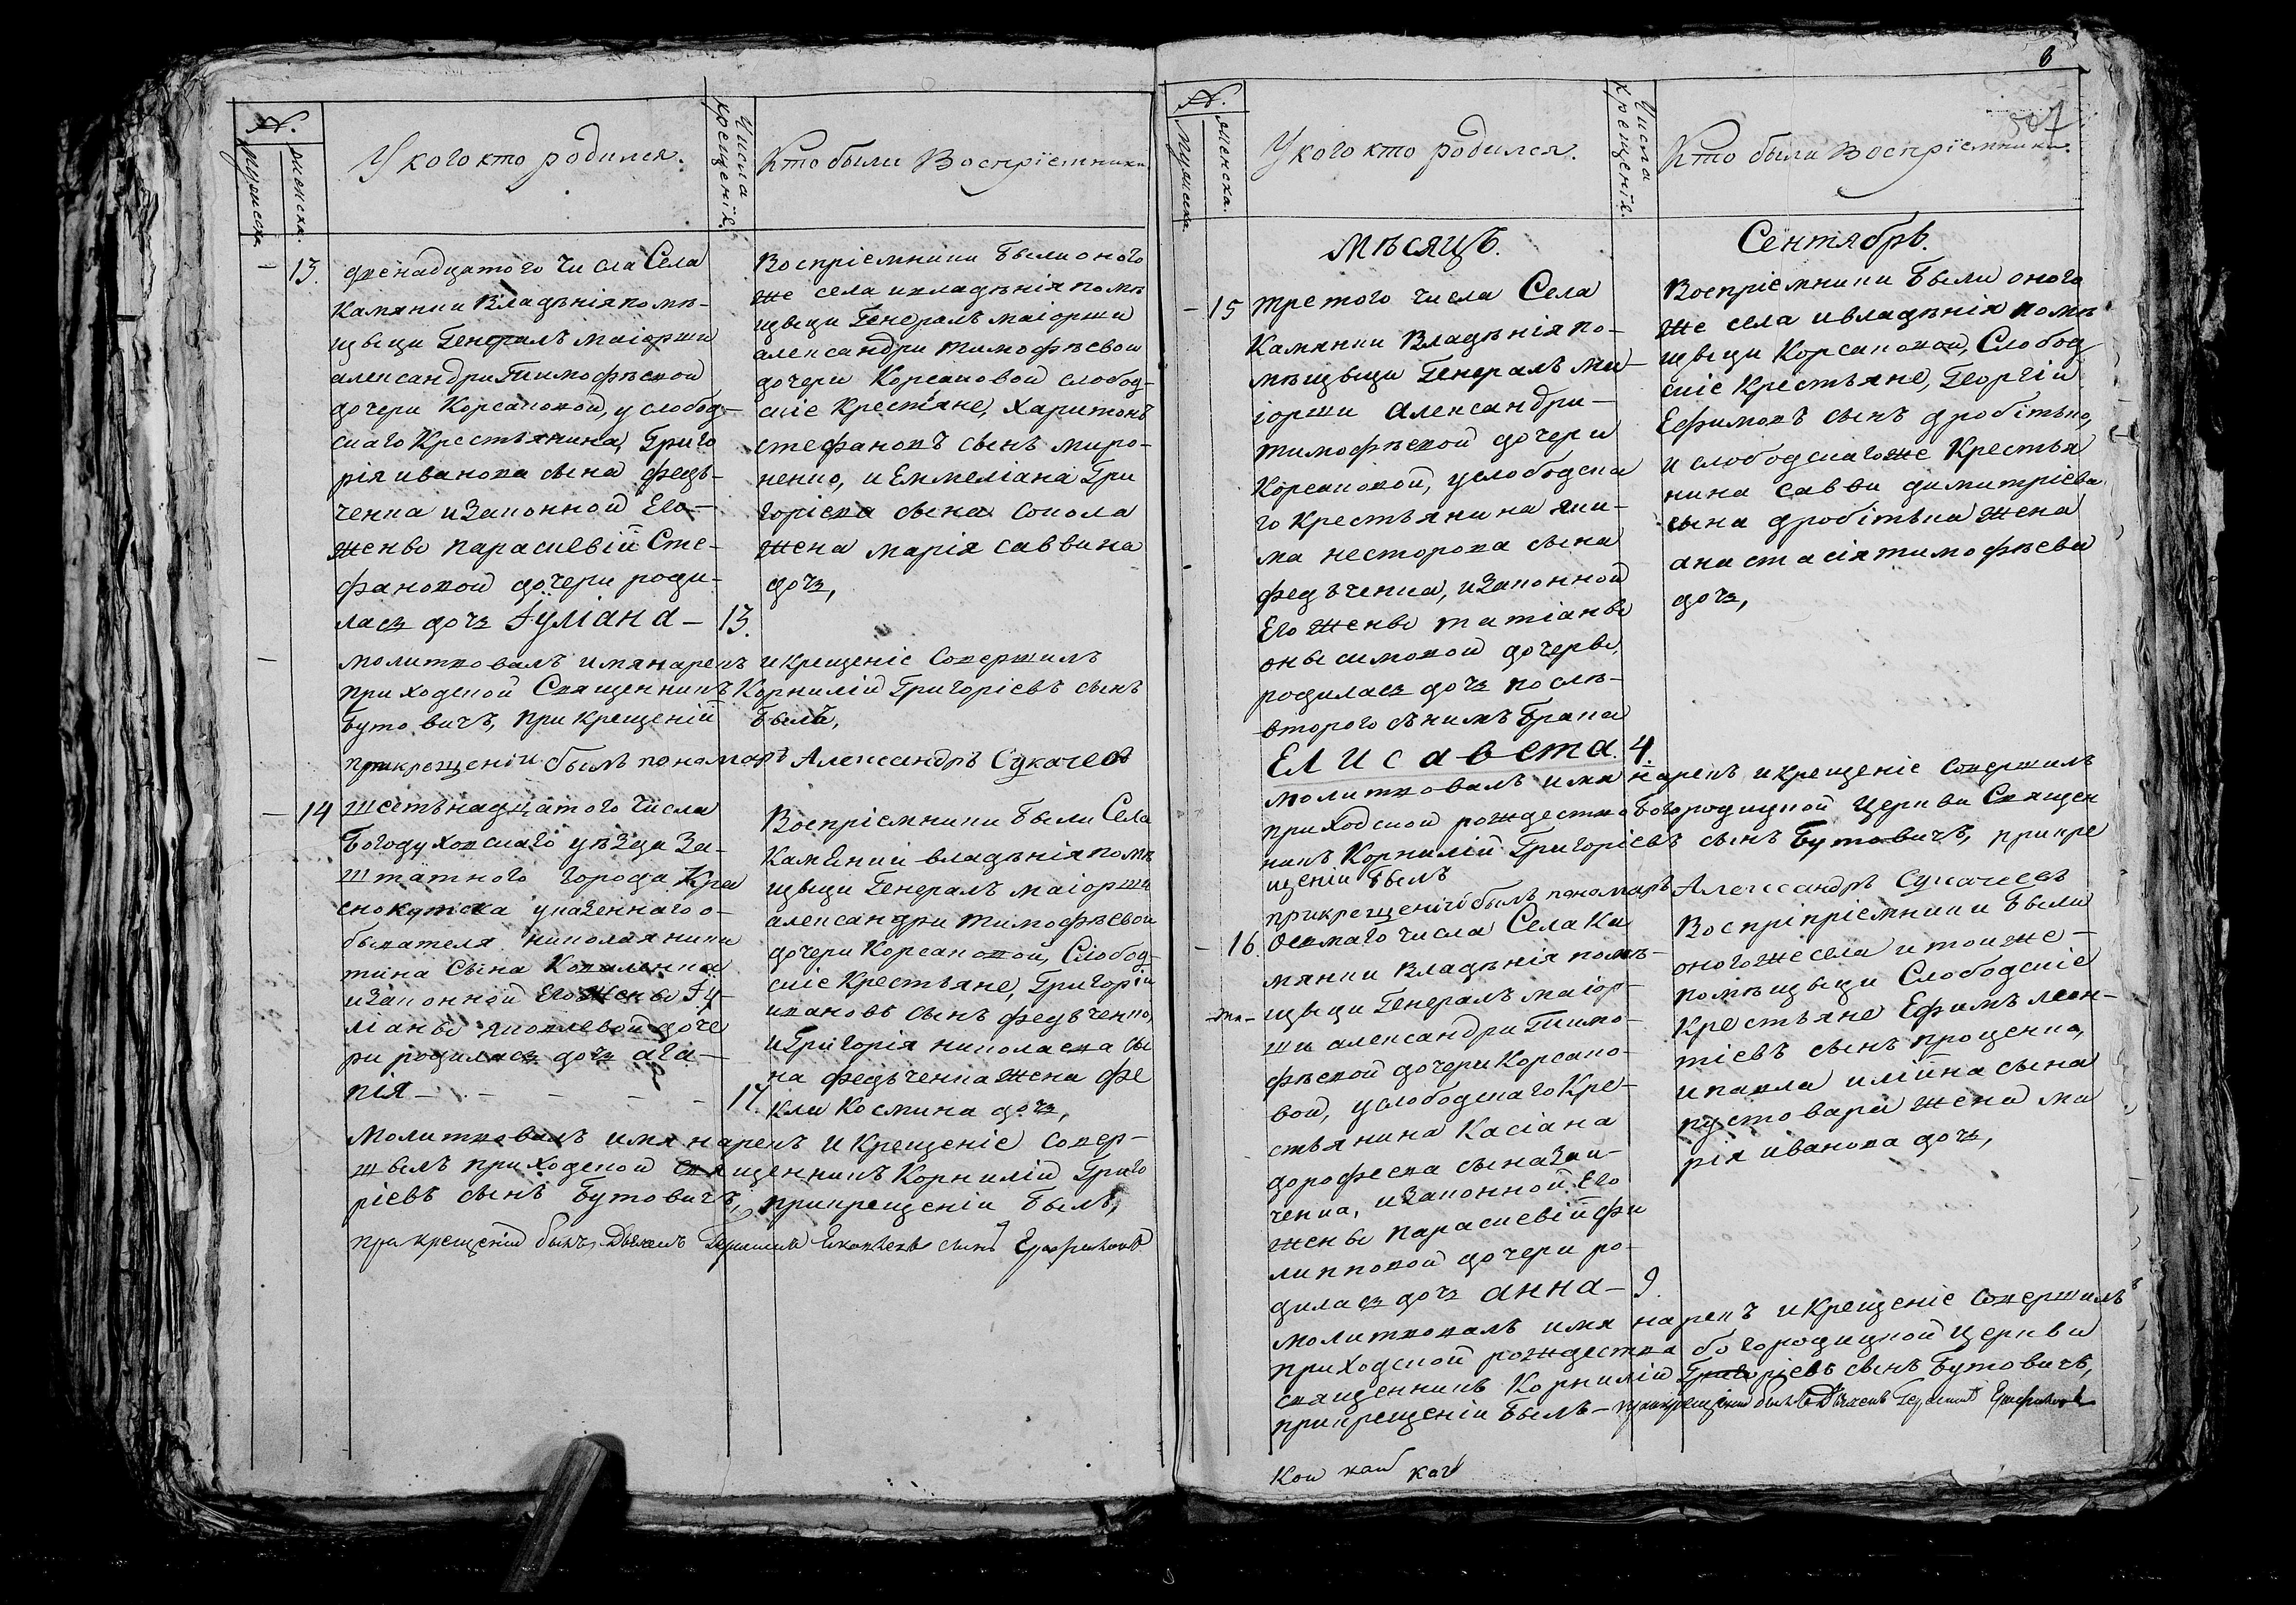 №.
Мужеска
женска.
У кого кто родился.
Числа крещенія.
Кто были Воспріемники
13. двенадцатого Числа Села
Камянки Владѣнія помѣ-
щыци Генералъ маіорши
александри Тимофѣевой
дочери Корсаковой, у слобод-
скаго Крестьянина, Григо
рія иванова сына Федь-
ченка и Законной Его-
женѣ параскевій Сте-
фановой дочери роди-
лась дочь Іуліана - 13.
Воспріемники были оного
же села и владѣнія помѣ
щыци Генералъ маіорши
александри тимофѣевой
дочери Корсаковой слобод-
скіе Крестяне, Харитонъ
стефановъ сынъ миро-
ненко, и Еммеліана Гри
горіева сына Сокола
жена марія саввина
дочь,
молитвовалъ имя нарекъ и крещеніе Совершилъ
приходской Священникъ Корнилій Григоріевъ сынъ
Бутовичъ, при крещеній былъ,
при крещеніи былъ пономарь Александръ Сукачев
14 шестьнадцатого Числа
Богодуховскаго уѣзда За-
штатного города Кра
снокутска указеннаго о-
бывателя николая ники
тина Сына Коваленка
и Законной Его Женѣ Іу-
ліаны яковлевой доче
ри родилась дочь ага-
пія - - - - - 17.
Воспріемники были Села
Каменки владѣнія помѣ
щыци Генералъ маіорши
александри тимофѣевой
дочери Корсаковой, Слобод-
скіе Крестьяне, Григорій
ивановъ сынъ федьченко,
и Григорія николаева сы
на федьченка жена фе
кла Космина дочь,
Молитвовалъ имя нарекъ и Крещеніе Совер-
шылъ приходской священникъ Корнилій Григо
ріевъ сынъ Бутовичъ, при крещеніи былъ,
при крещеній былъ, Дьяконъ Герасимъ сынъ
6
№.
Мужеска
женска.
У кого кто родился.
Числа крещенія.
Кто были Воспріемники.
Мѣсяцъ. Сентябрь.
15 третого числа Села
Камянки Владѣнія по-
мѣщыци Генералъ ма-
іорши александри-
тимофѣевой дочери
Корсаковой, у слободска
го Крестьянина яки-
ма несторова сына
федьченка, и Законной
Его женѣ татіанѣ
онысимовой дочерѣ,
родилась дочь послѣ-
второго съ нимъ брака
Елисавета. 4.
Воспріемники были оного
же села и владѣнія помѣ
щыци Корсаковой, Слобод
скіе Крестьяне, Георгій
Ефимовъ сынъ дробітько,
и слободскаго же Крестья
нина Савви димитріева
сына дробітька жена
анастасія тимофѣева
дочь,
молитвовалъ имя нарекъ и крещеніе Совершилъ
приходской рождество Богородицкой Церкви Священ
никъ Корнилій Григоріевъ сынъ Бутовичъ, при кре
щеніи былъ
при крещеніи былъ пономарь Александръ Сукачеев
16. Осмаго числа Села Ка
мянки Владѣнія помѣ-
щыци Генералъ маіор-
ши александри Тимо-
фѣевой дочери Корсако-
вой, у слободскаго Кре-
стьянина Касіана
дорофеева сына Заи-
ченка, и Законной Его
женѣ параскевій фи
липповой дочери ро-
дилась дочь анна - 9.
Воспріпріемники были
оного же села и тои же-
помѣщыци Слободскіе
Крестьяне Ефимъ леон-
тіевъ сынъ проценко,
и павла илійна сына
пустовара жена ма
рія иванова дочь,
молитвовалъ имя нарекъ и крещеніе Совершилъ
приходской рождества богородицкой Церкви
священникъ Корнилій Григоріевъ сынъ Бутовичъ,
при крещеніи былъ - при крещеніи былъ Дьяконъ Герасимъ